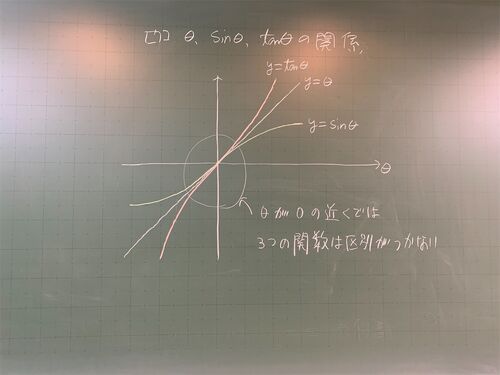 θ、sinθ、tanθの関係、
y=tanθ
y=θ
y=sinθ
θ
θが0の近くでは
3つの関数は区別がつかない